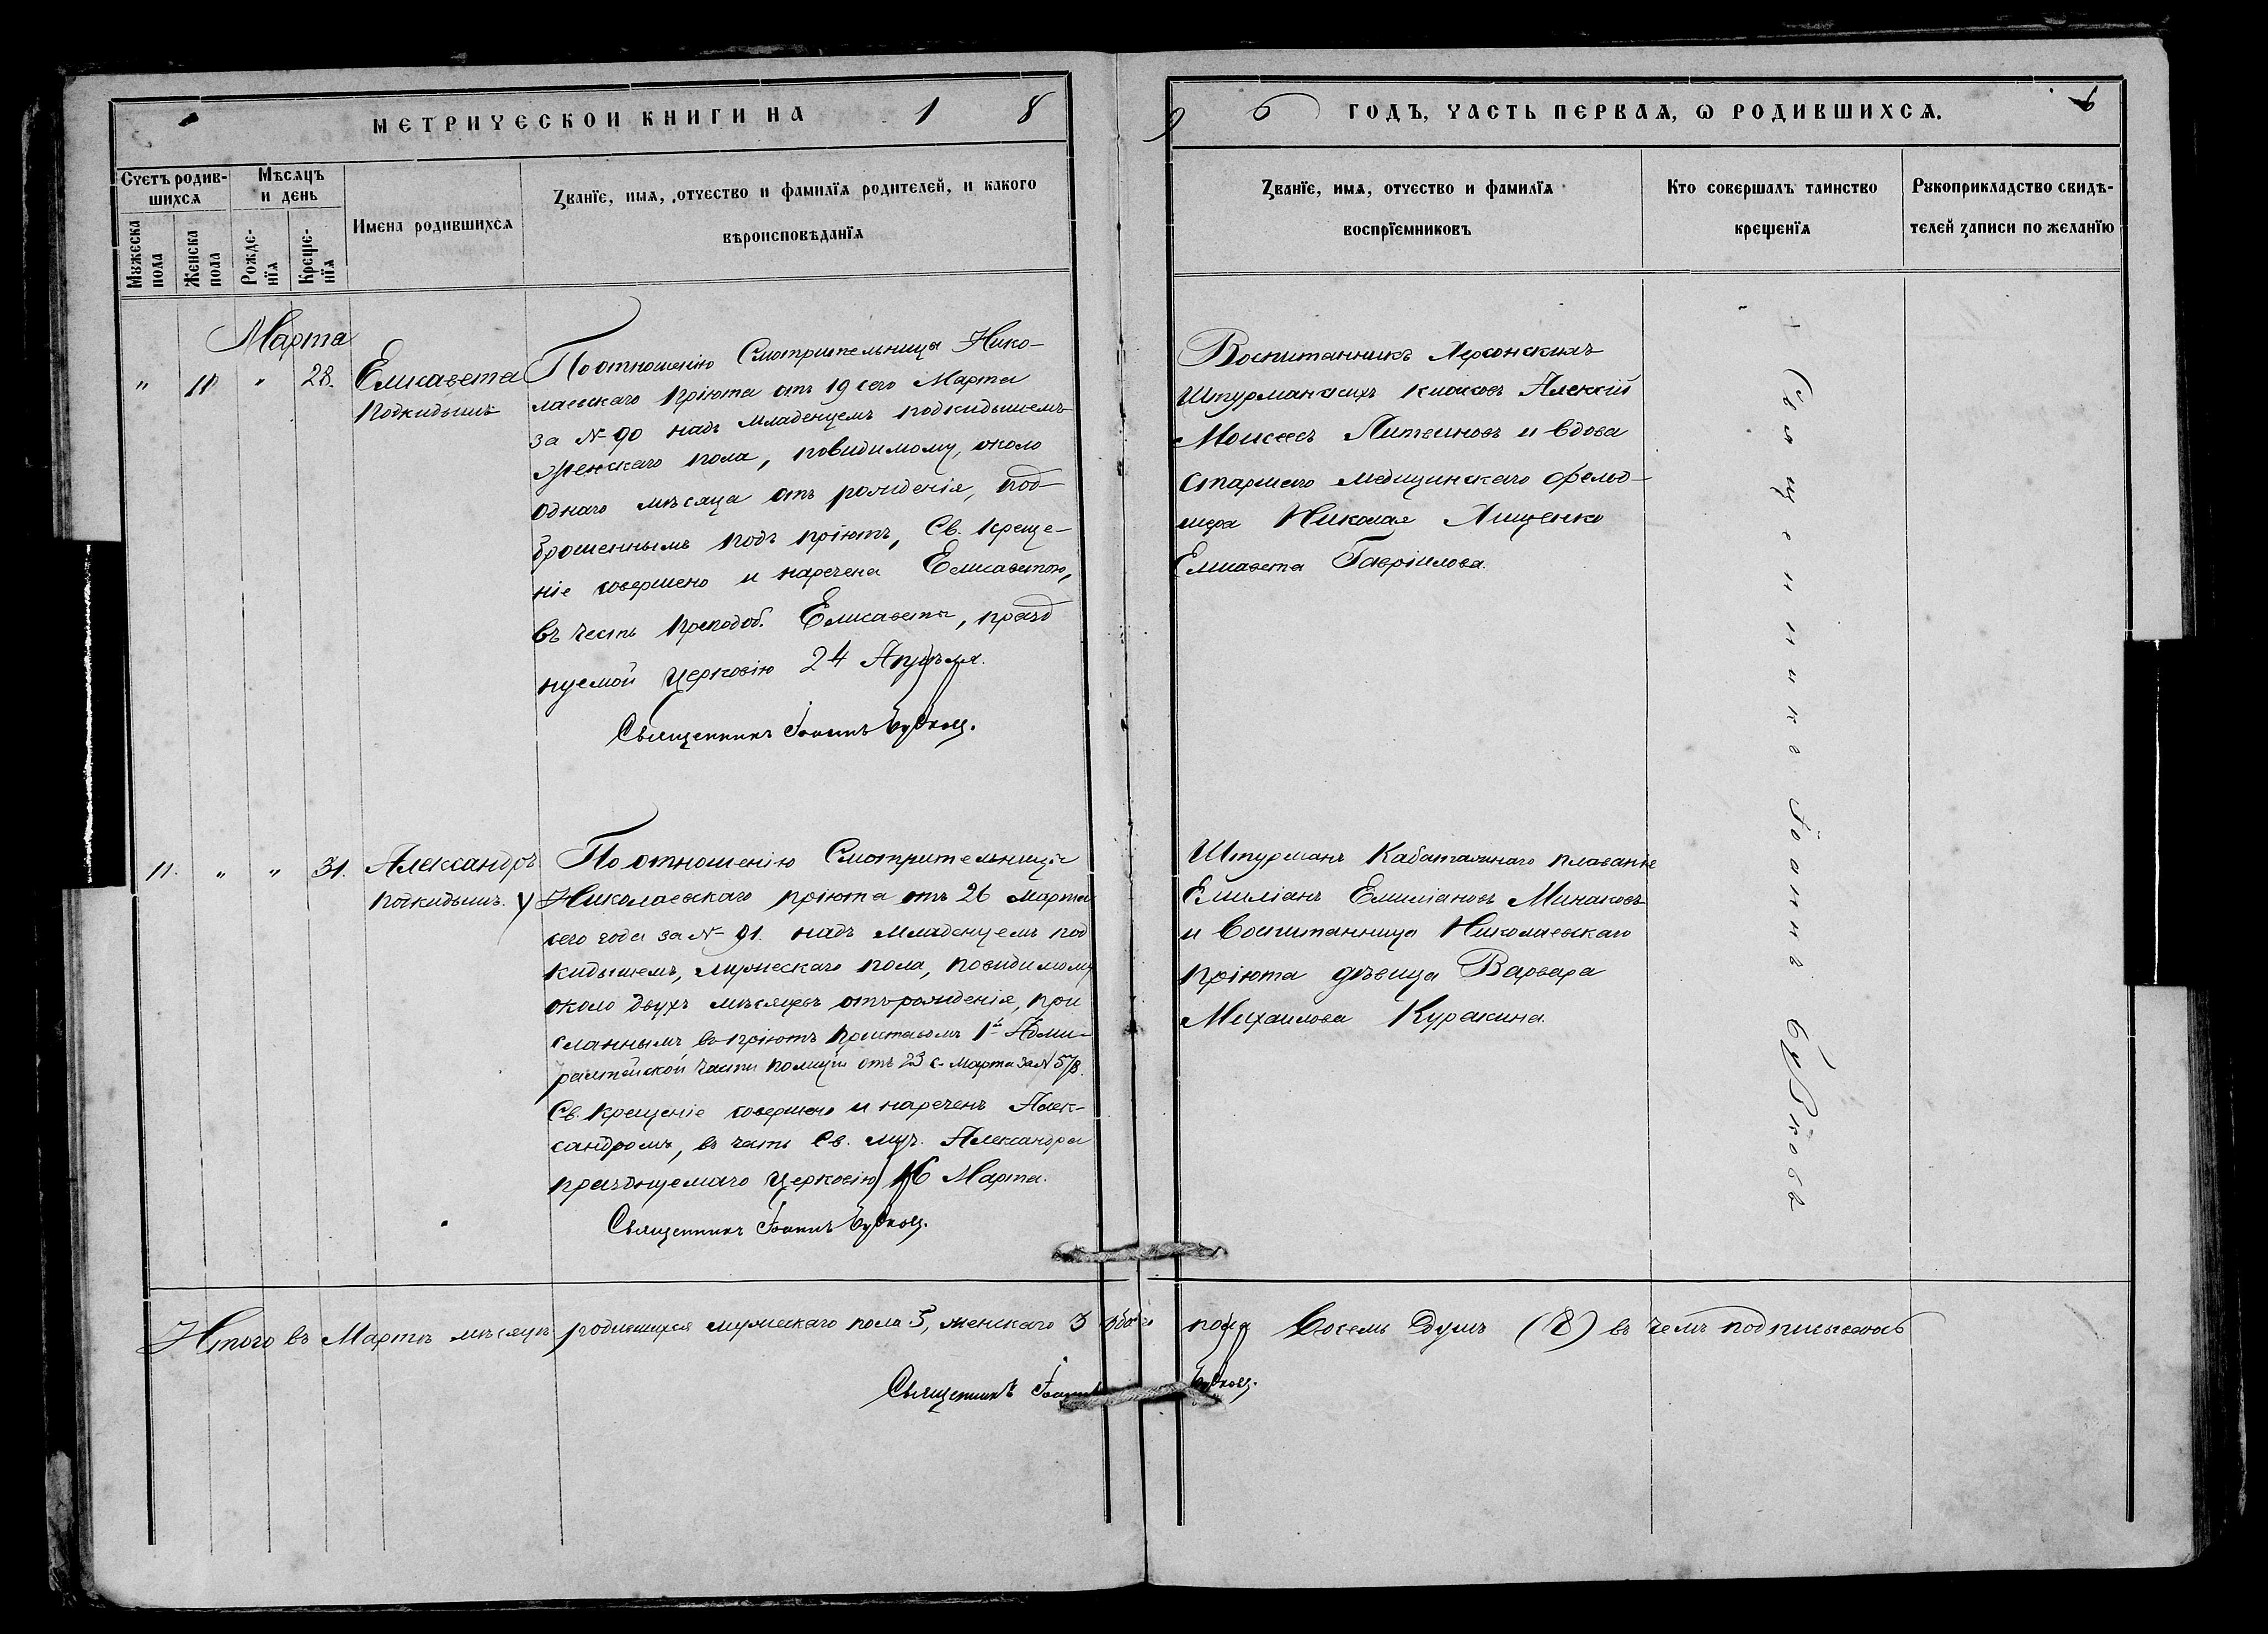 МЕТРИЧЕСКОЙ КНИГИ НА 1 8
9 6 ГОДЪ, ЧАСТЬ ПЕРВАѦ, Ѡ РОДИВШИХСѦ. 6
Счетъ родив-
шихсѧ
Мѣсѧцъ
и день
Мꙋжеска
пола
Женска
пола
Рожде-
нїѧ
Креще-
нїѧ
Имена родившихсѧ
Званїе, имѧ, отчество и фамилїѧ родителей, и какого
вѣроисповѣданїѧ
Званїе, имѧ, отчество и фамилїѧ
воспрїемниковъ
Кто совершалъ таинство
крещенїѧ
Рꙋкоприкладство свидѣ-
телей записи по желанїю
Марта
" 11 " 28.
Елисавета
подкидышъ
По отношенію Смотрительницы Нико-
лаевскаго пріюта отъ 19 сего Марта
за № 90 надъ младенцемъ подкидышемъ
женскаго пола, повидимому, около
однаго мѣсяца отъ рожденія, под-
брошеннымъ подъ пріютъ, Св. Креще-
ніе совершено и наречена Елисаветою,
въ честь преподоб. Елисаветы, празд
нуемой Церковію 24 Апрѣля.
Священникъ Іоаннъ
Воспитанникъ Херсонскихъ
Штурманскихъ классовъ Алексій
Моисеевъ Литвиновъ и вдова
старшего медицинскаго фельд-
шера Николая Лищенко
Елисавета Гавріилова.
Священникъ Іоаннъ
11. " " 31.
Александръ
подкидышъ.
По отношенію Смотрительницы
Николаевскаго пріюта отъ 26 Марта
сего года за № 91. надъ младенцемъ под
кидышемъ, мужескаго пола, повидимому
около двухъ мѣсяцевъ отъ рожденія, при
сланнымъ въ пріютъ Приставомъ 1й Адми-
ралтейской части полиціи отъ 23 с. Марта за № 578.
Св. Крещеніе совершено и нареченъ Алек-
сандромъ, въ честь Св. муч. Александра
празднуемаго Церковію 16 Марта.
Священникъ Іоаннъ
Штурманъ Каботажнаго плаваніе
Емиліанъ Емиліановъ Минаковъ
и воспитанница Николаевскаго
пріюта дѣвица Варвара
Михаилова Куракина
Итого въ Мартѣ мѣсяцѣ родившихся мужескаго пола 5, женскаго 3 обоего пола Восемь душъ (8) въ чемъ подписываюсь
Священникъ Іоаннъ